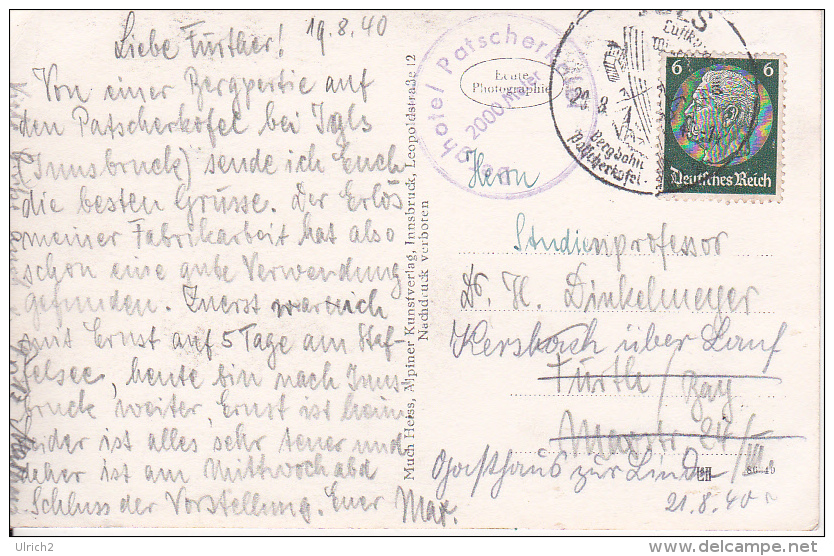 19.8.40
Liebe Fürther!
Von einer Bergpartie auf
den Patscherkofel bei Igls
(Innsbruck) sende ich Euch
die besten Grüsse. Der Erlös
meiner Fabrikarbeit hat also
schon eine gute Verwendung
gefunden. Zuerst war ich
mit Ernst auf 5 Tage am Staf-
felsee, heute bin nach Inns
bruck weiter, Ernst ist heim
Leider ist alles sehr teuer und
daher ist am Mittwoch abd
Schluss der Vorstellung. Euer Max.
Much Heiss, Alpiner Kunstverlag, Innsbruck, Leopoldstraße 12
Nachdruck verboten
Echte
Photographie
Patscherkofel
2000 Meter
Bergbahn
Patscherkofel
6 6
Deutsches Reich
Herrn
Studienprofessor
Dr. H. Dinkelmeyer
Kersbach über Lauf
Fürth / Bay
Maxstr 24/
Gasthaus zur Linde
21.8.40
Ulrich2